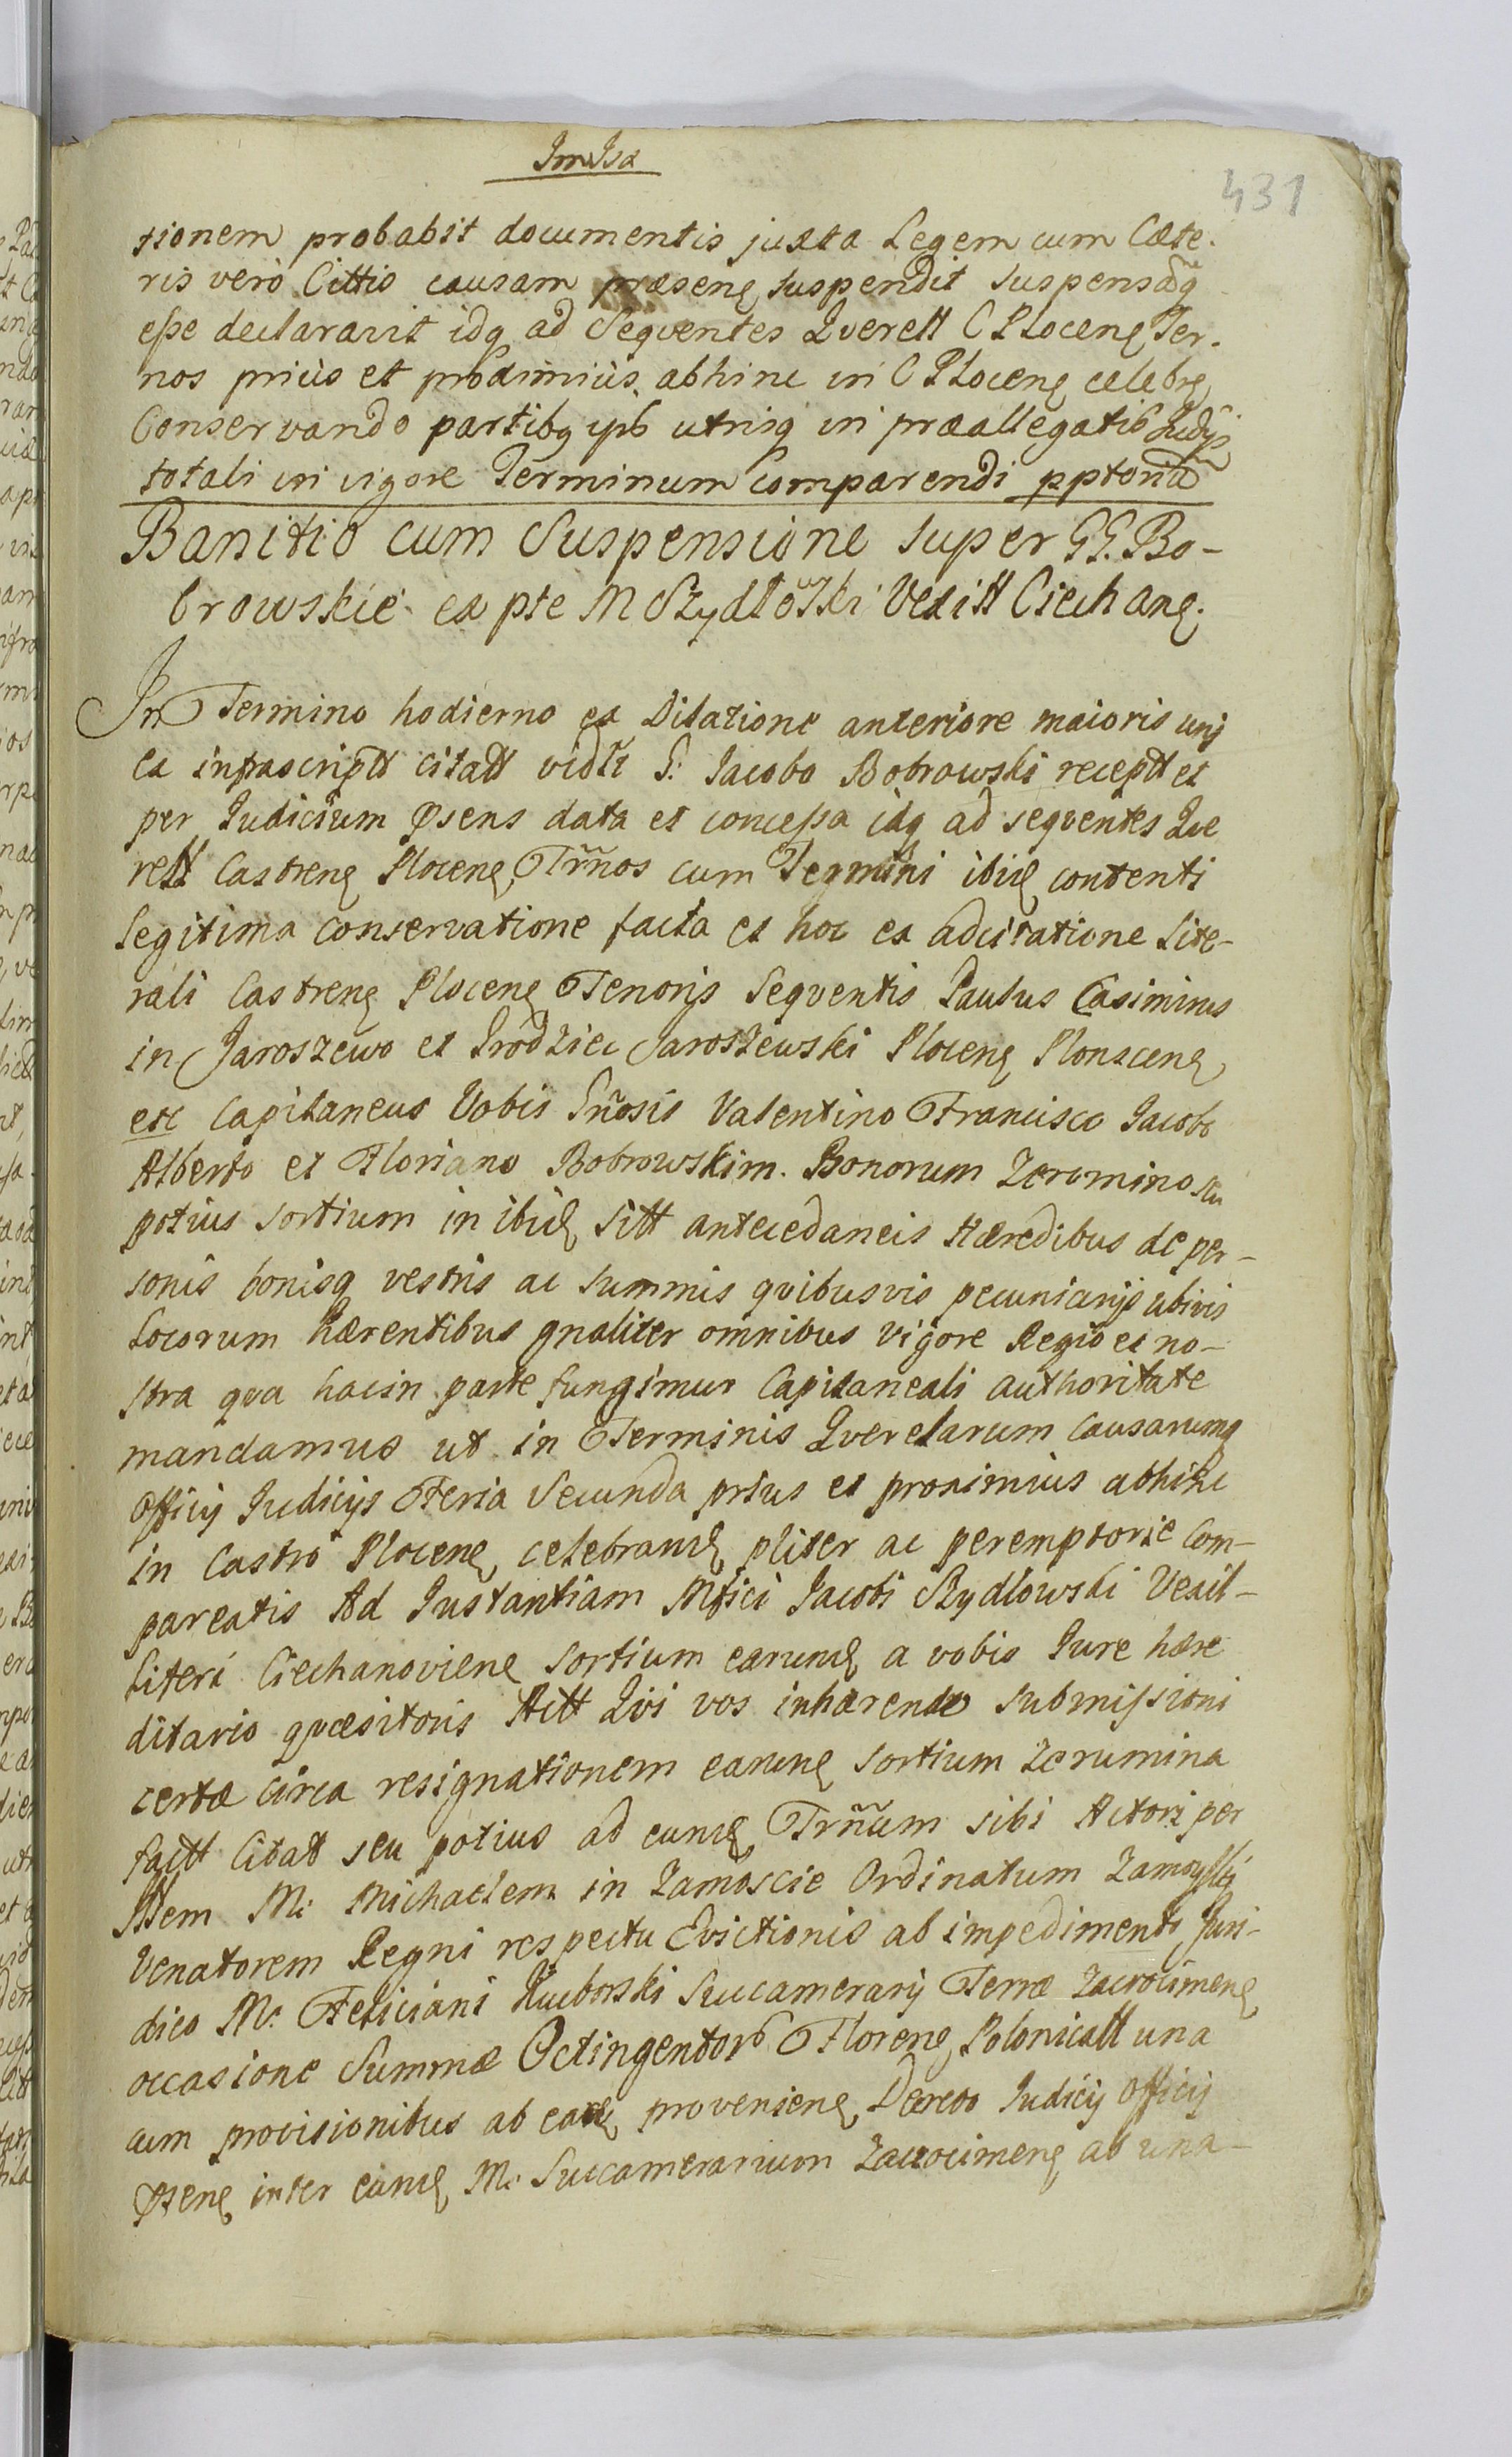 431
sionem probabit documentis juxta Legem cum Cæte.
ris verò Cittis causam præsenę suspendit suspensāq
eße declaravit idq ad Seqventes Qverell C Plocenę Ter.
nos priùs et proximiùs abhinc in C Plocenę celebrę
Conservando partibq ipis utrisq in præallegatis Judijs
totali in vigore Terminum comparendi pptoriū
Banitio cum Suspensione super GG. Bo-
browskie ex pte M Szydłowski Vexill Ciechanę.
In Termino hodierno ex Dilatione anteriore maioris unj
ex infrascriptt citatt vidtt G. Jacobo Bobrowski receptt et
per Judicium psens data et conceßa idq ad seqventes Qve
rell Castrenę Plocenę Trm̃nos cum Termini ibidę contenti
legitima conservatione facta et hoc ex adcitatione Lite-
rali Castrenę Plocenę Tenoris Seqventis Paulus Casimirus
in Jaroszewo et Grodziec Jaroszewski Plocenę Plonscenę
etc Capitaneus Vobis Gñosis Valentino Francisco Jacobo
Alberto et Floriano Bobrowskim. Bonorum Zeromino seu
potius sortium in ibidę sitt antecedaneis Hæredibus de per-
sonis bonisq vestris ac summis qvibusvis pecuniarijs ubivis
Locorum hærentibus gnaliter omnibus vigore Regio et no-
stra qva hacin parte fungimur Capitaneali authoritate
mandamus ut in Terminis Qverelarum Causarumq
Officij Judicijs Feria Secunda prius et proximius abhinc
in Castro Plocenę celebrandę pliter ac peremptorie Com-
pareatis Ad Instantiam Mfici Jacobi Szydłowski Vexil-
liferi Ciechanovienę sortium earundę a vobis Jure hære
ditario qvæsitoris Actt Qvi vos inhærendo submißioni
certæ circa resignationem earundę sortium Zerumina
factt Citat seu potius ad eundę Trm̃num sibi Actori per
Illem M. Michaelem in Zamoscie Ordinatum Zamoyski
Venatorem Regni respectu Evictionis ab impedimento Juri-
dico M. Feliciani Kuczborski Succamerarij Terræ Zacrocimenę
occasione Summæ Octingentor Florenę Polonicall una
cum provisionibus ab eadę provenienę Decreto Judicij Officij
psenę inter eundę M. Succamerarium Zacrocimenę ab una